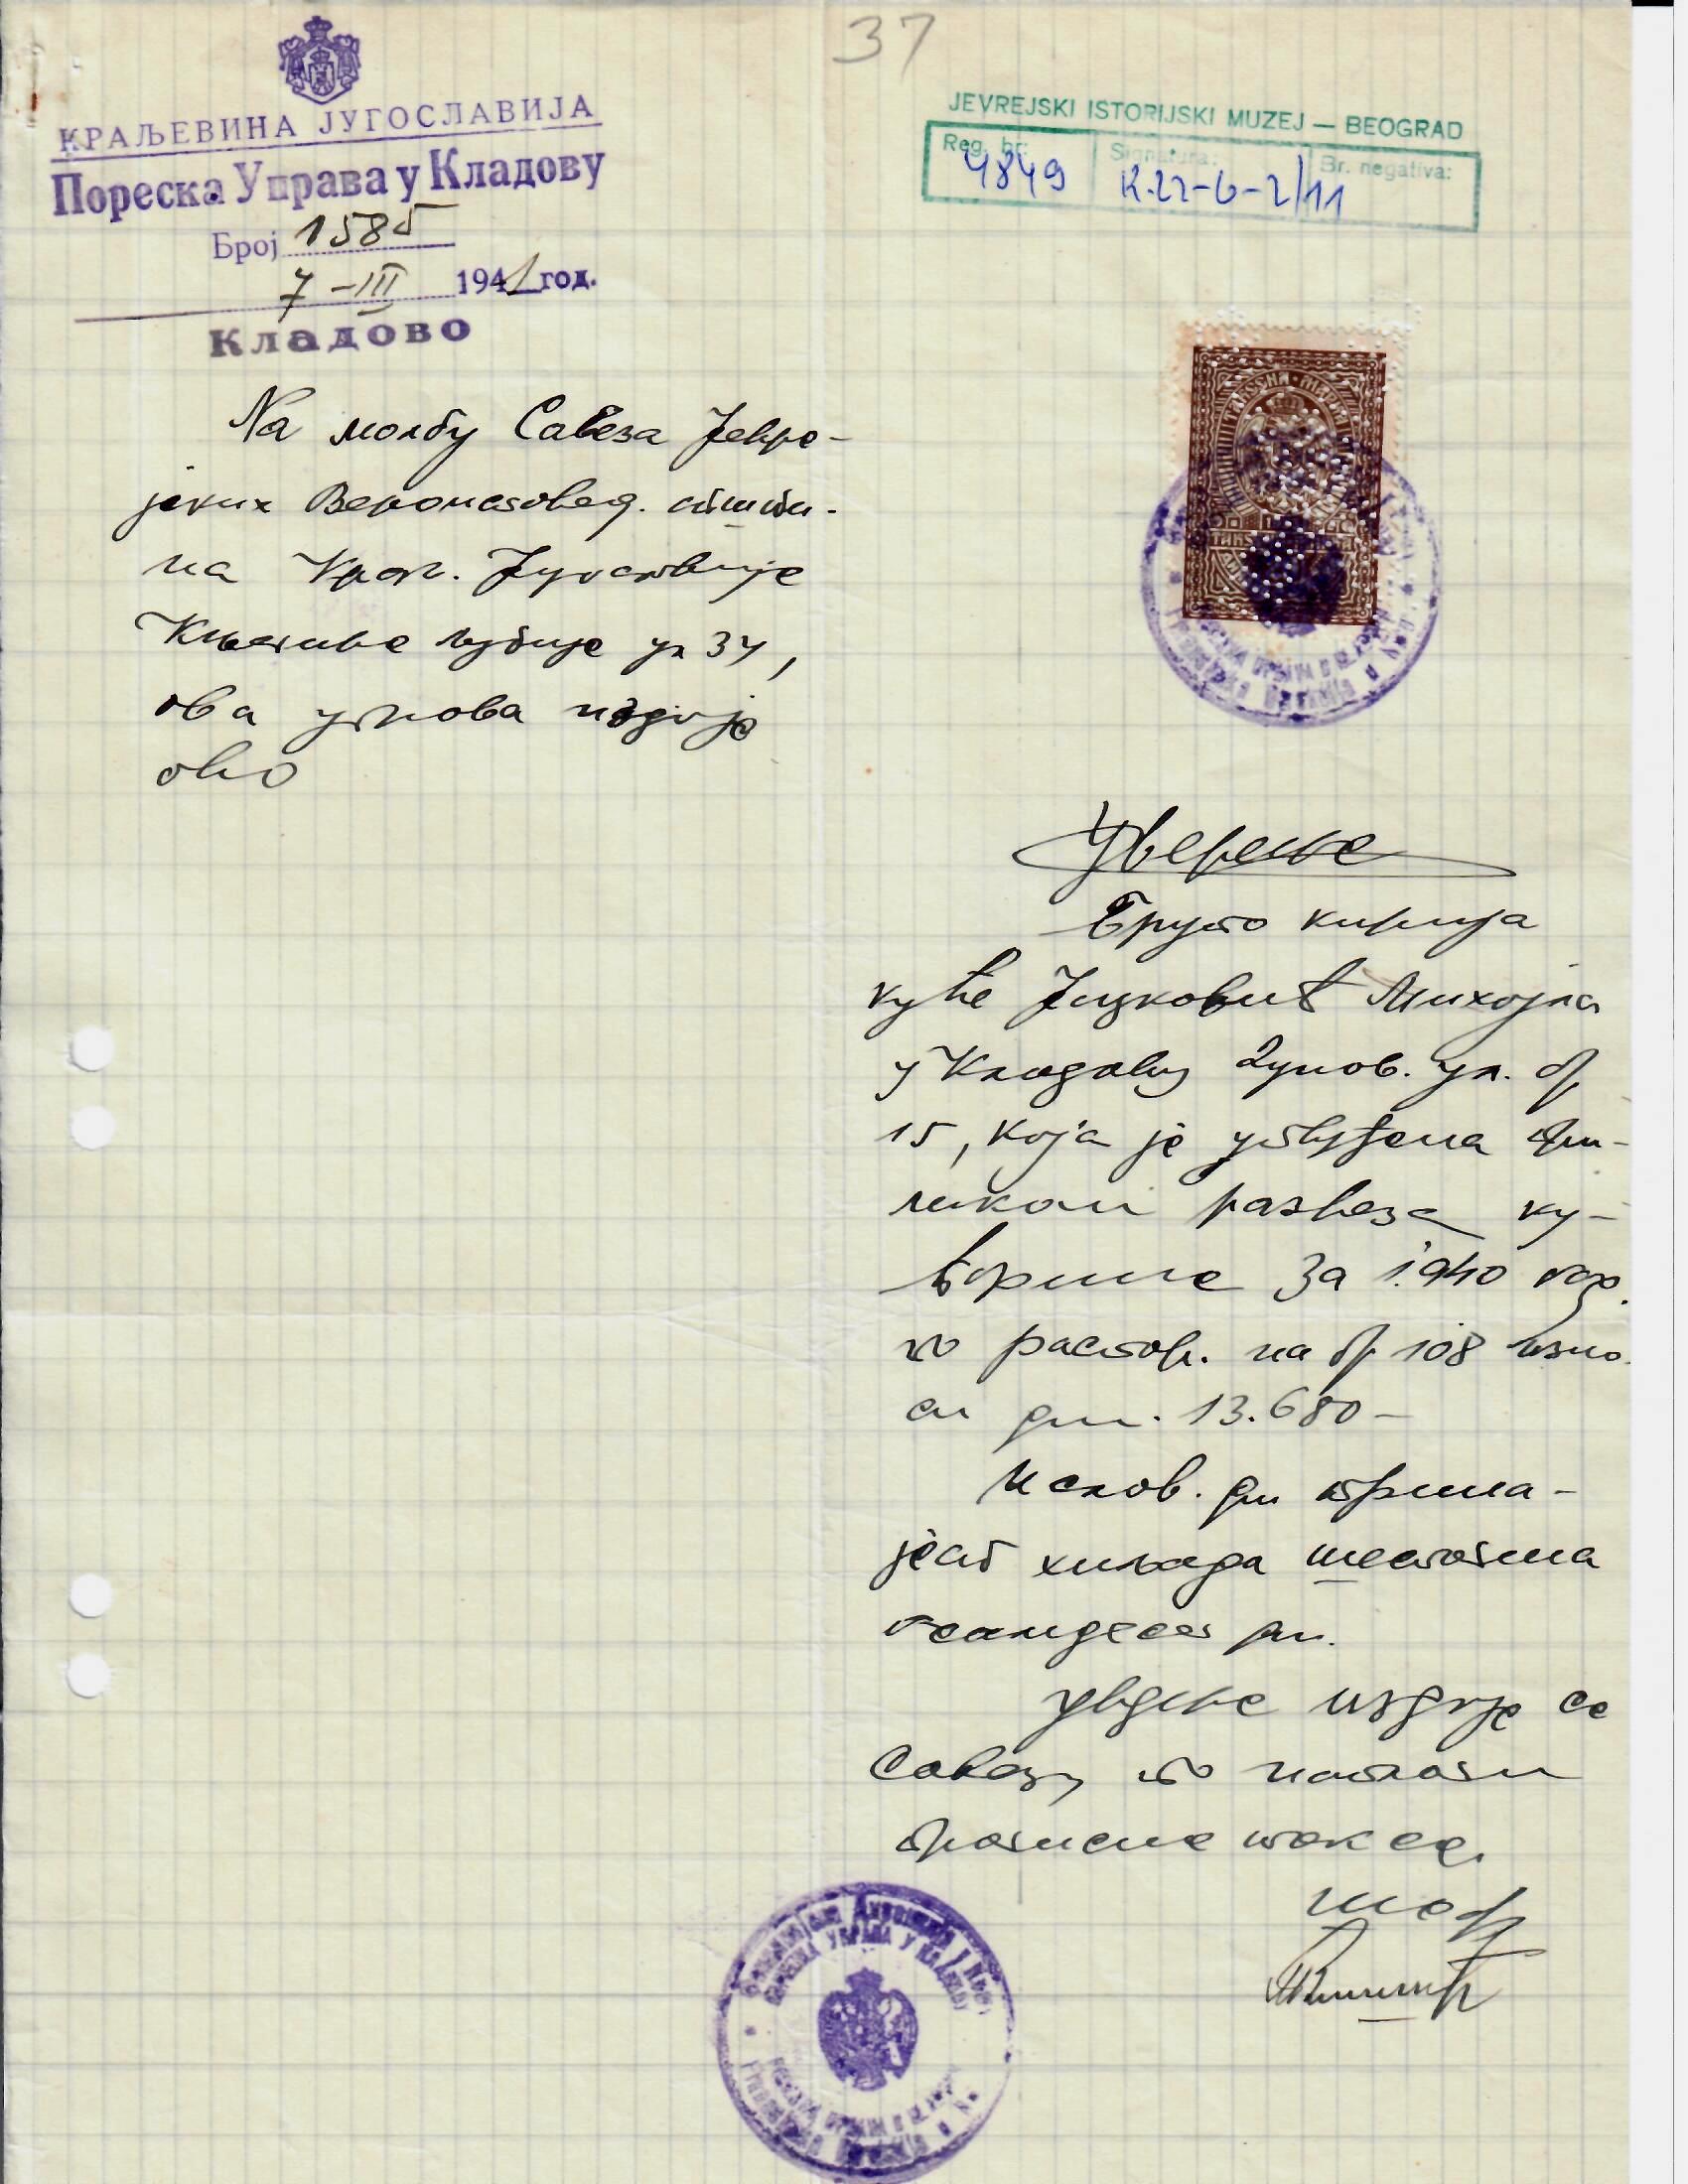 37
КРАЉЕВИНА ЈУГОСЛАВИЈА
Пореска Управа у Кладову
Број 1585
7-III 1941 год.
Кладово
JEVREJSKI ISTORIJSKI MUZEJ — BEOGRAD
Reg. br. 4849
Signatura: K.22-6-2/11
Br. negativa:
На молбу Савеза Јевре-
јских Вероисповед. општи-
на Краљ. Југославије
Књегиње Љубице ул 34,
ова управа издаје
ово
Уверење
Бруто кирија
куће Јацковић Михојла
у Кладову Дунов. ул. бр
15, која је утврђена при-
ликом разреза ку-
ћарине за 1.940 год.
по растер. на бр 108 изно-
си дин. 13.680-
И слов. дин трина-
јест хиљада шестотина
осамдесет дин.
Уверење издаје се
Савезу по наплати
прописане таксе.
Шеф
ПОРЕСКА УПРАВА У КЛАДОВУ